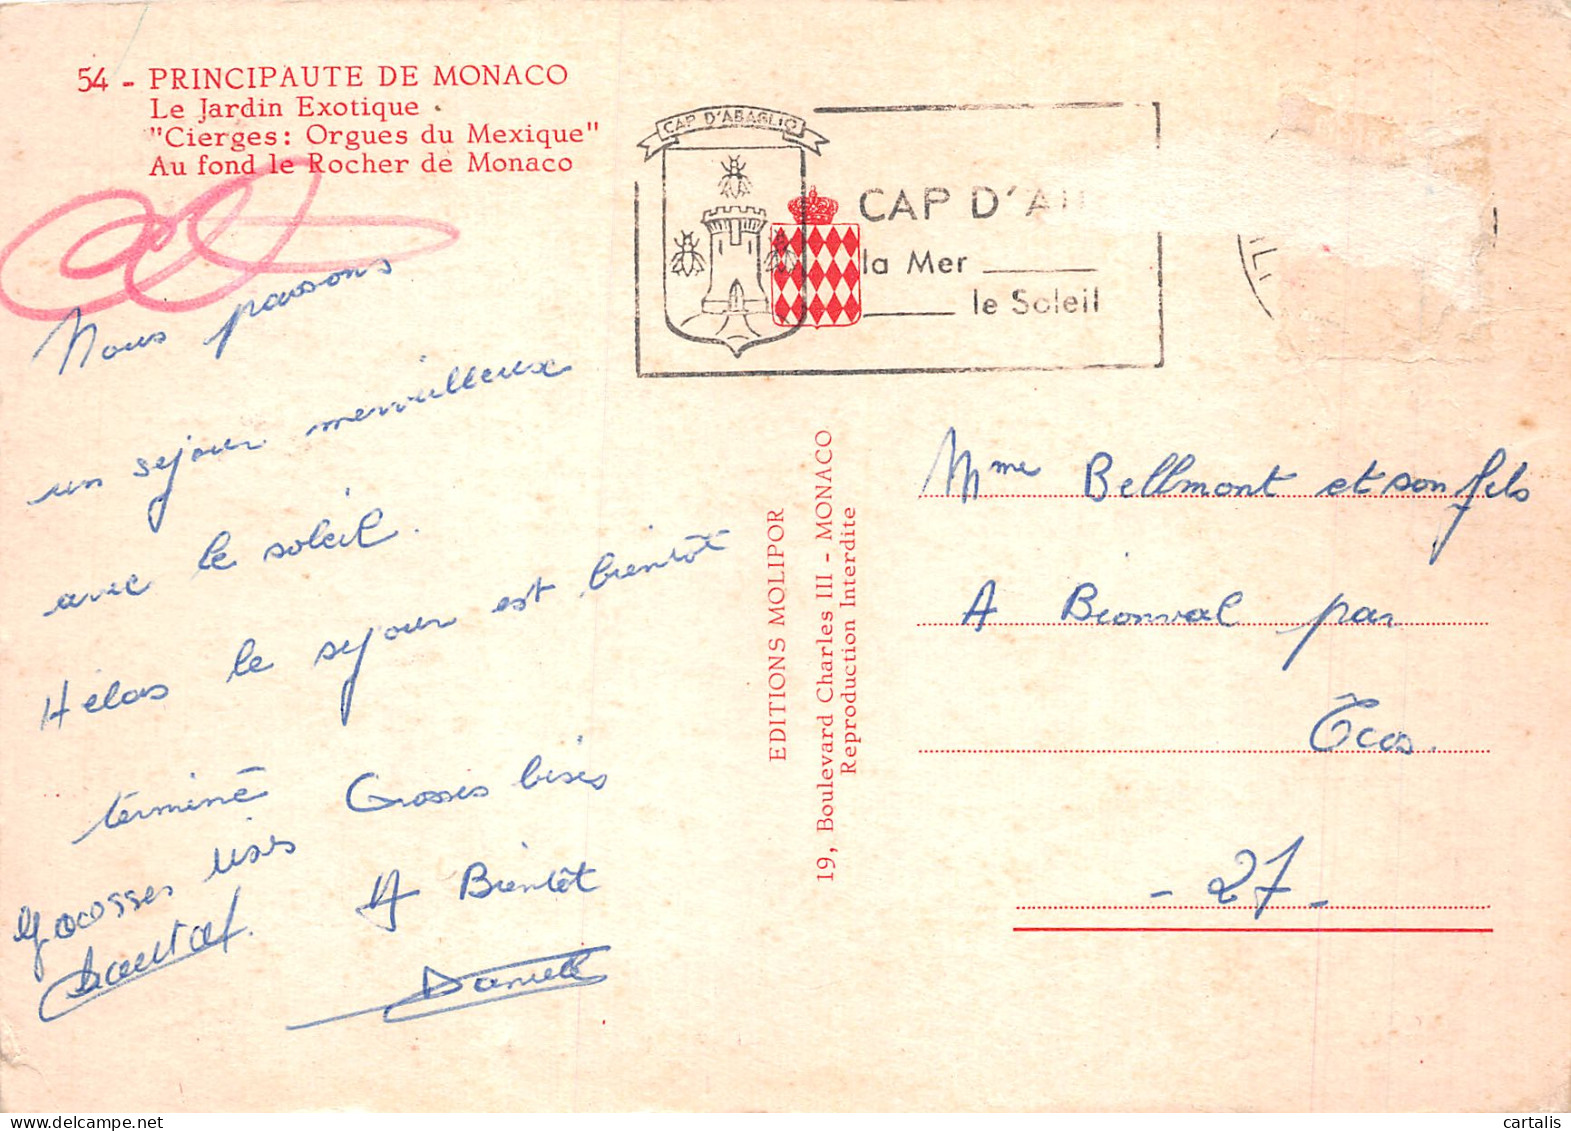 54 - PRINCIPAUTE DE MONACO
Le Jardin Exotique
"Cierges: Orgues du Mexique"
Au fond le Rocher de Monaco
CAP D'ABAGLIO
CAP D'AI
la Mer
le Soleil
Nous passons
un sejour merveilleux
avec le soleil.
Hélas le sejour est bientôt
terminé Grosses bises
Grosses bises
A Bientôt
Chantal.
Danielle
EDITIONS MOLIPOR
19, Boulevard Charles III - MONACO
Reproduction Interdite
Mme Bellmont et son fils
A Bionval par
Ecos.
- 27 -
cartalis